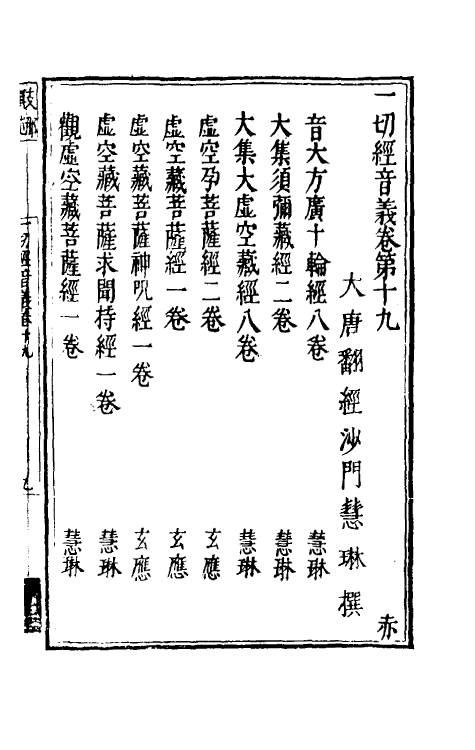 一切經音義卷第十九 赤
大唐翻經沙門慧琳撰
音大方廣十輪經八卷 慧琳
大集須彌藏經二卷 慧琳
大集大虛空藏經八卷 慧琳
虛空孕菩薩經二卷 玄應
虛空藏菩薩經一卷 玄應
虛空藏菩薩神呪經一卷 玄應
虛空藏菩薩求聞持經一卷 慧琳
觀虛空藏菩薩經一卷 慧琳
一切經音義卷十九